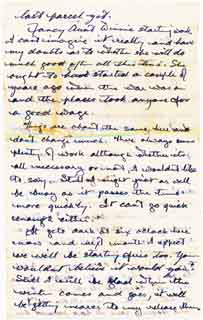 last parcel yet.
Fancy Aunt Winnie starting work
I can imagine it really, and have
my doubts as to whether she will do
much good after all this time. She
ought to have started a couple of
years ago when the war was on
and the places took anyone for
a good wage.
Things are about the same here and
don't change much. There always seems
plenty of work although whether its
all necessary or not, I wouldn't like
to say. Still it might just as well
be busy as it passes the time
more quickly. It can't go quick
enough either.
It gets dark at six o'clock here
now and next month I expect
we will be starting fires too. You
wouldn't believe it would you?
Still I will be glad when the
winter comes and goes, it will
be getting nearer to my release then